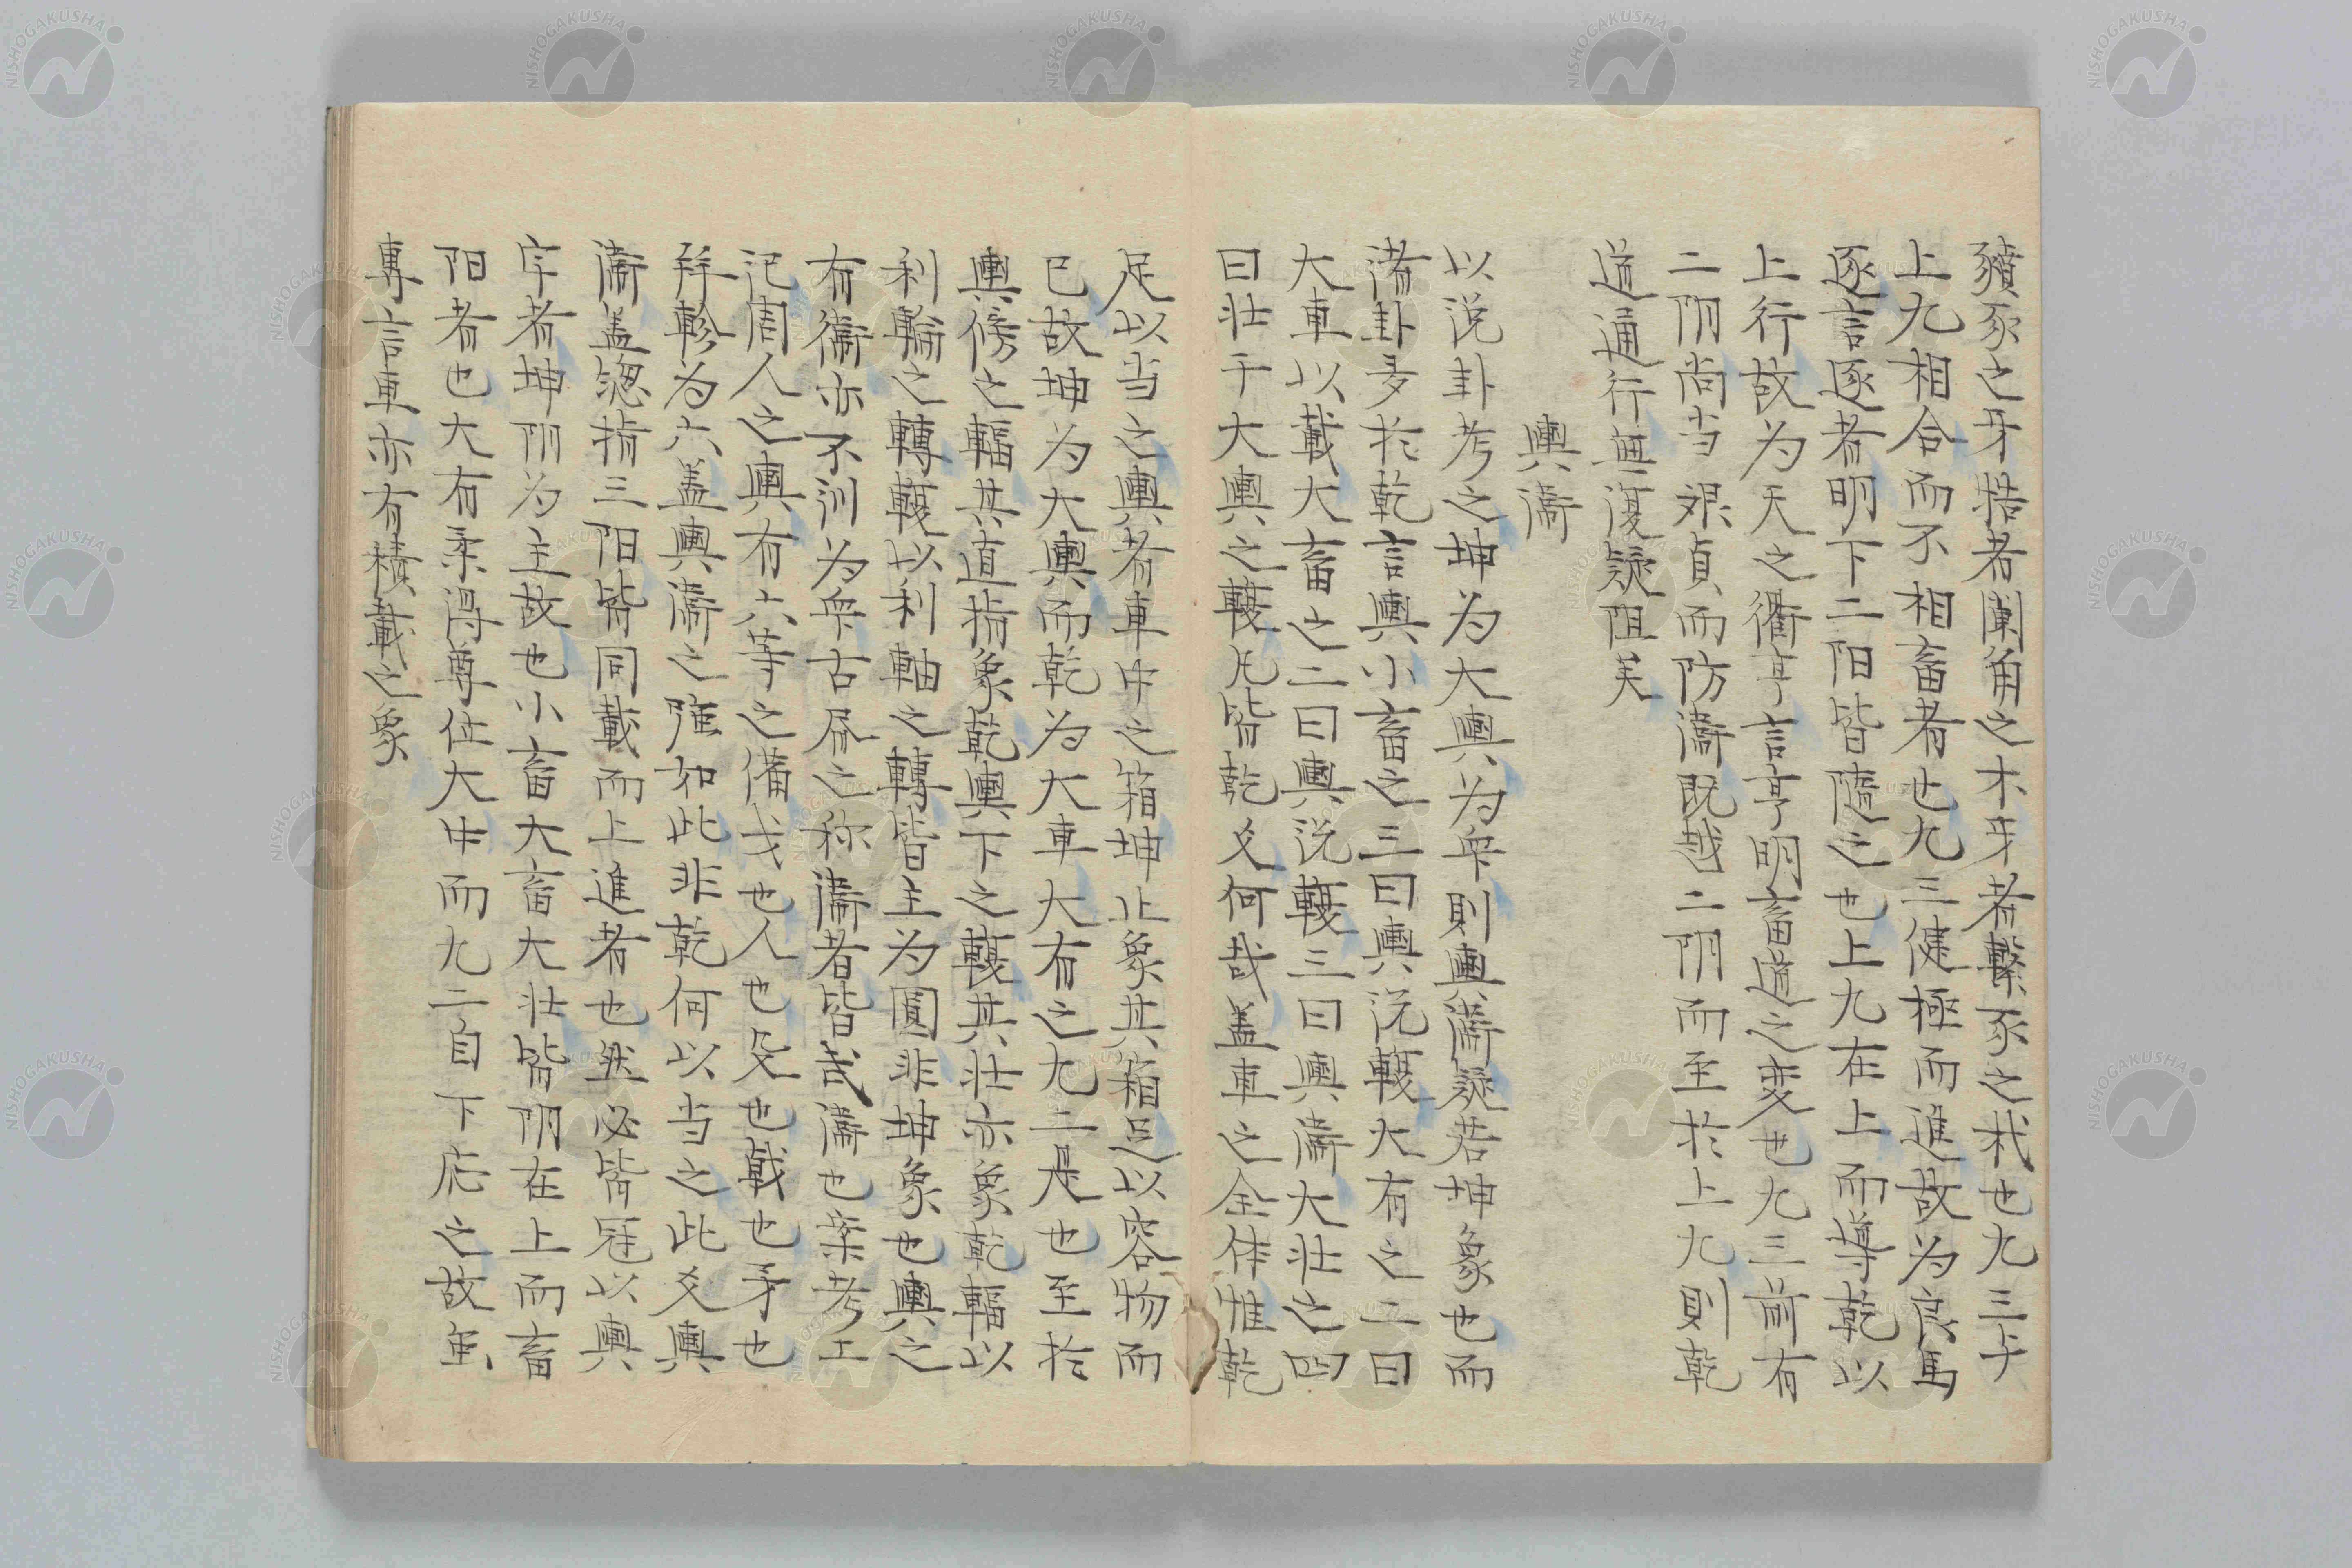 豶豕之牙牿者闌角之木牙者繫豕之杙也九三于
上九相合而不相畜者也九三健極而進故为良馬
逐言逐者明下二阳皆隨之也上九在上而導乾以
上行故为天之衢亨言亨明畜道之変也九三前有
二阴尚当艰貞而防衛既越二阴而至於上九則乾
道通行無復疑阻矣
輿衛
以说卦考之坤为大輿为众則輿衛疑若坤象也而
诸卦多於乾言輿小畜之三曰輿说輹大有之二曰
大車以載大畜之二曰輿说輹三曰輿衛大壮之四
曰壮于大輿之輹凡皆乾爻何哉盖車之全体惟乾
足以当之輿者車中之箱坤止象其箱足以容物而
已故坤为大輿而乾为大車大有之九二是也至於
輿傍之輻其道指象乾輿下之輹其壮亦象乾輻以
利輪之轉輹以利軸之轉皆主为圓非坤象也輿之
有衛亦不训为众古昏之称衛者皆武備也案考工
记周人之輿有六等之備戈也人也殳也戟也矛也
并軫为六盖輿衛之強如此非乾何以当之此爻輿
衛盖総指三阳皆同載而上進者也然必皆冠以輿
字者坤阴为主故也小畜大畜大壮皆阴在上而畜
阳者也大有柔得尊位大中而九二自下応之故虽
專言車亦有積載之象
NISHOGAKUSHA